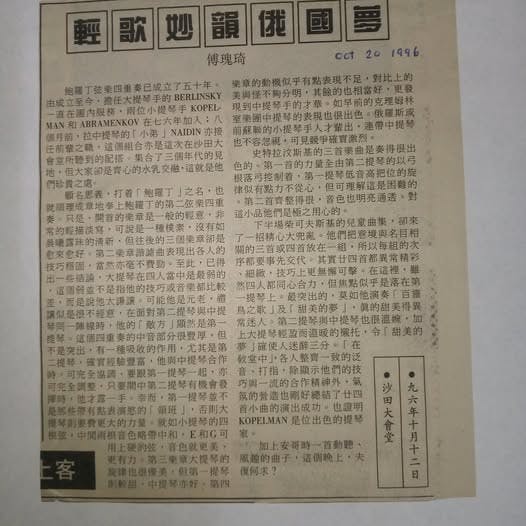 輕歌妙韻俄國夢
傅瑰琦
Oct 20 1996
鮑羅丁弦樂四重奏已成立了五十年。
由成立至今，擔任大提琴手的 BERLINSKY
一直在團內服務，兩位小提琴手 KOPEL-
MAN 和 ABRAMENKOV 在七六年加入；八
個月前，拉中提琴的「小弟」NAIDIN 亦接
任前輩之職，這個組合亦是這次在沙田大
會堂所聽到的配搭。集合了三個年代的見
地，但大家卻是齊心的水乳交融，這就是他
們珍貴之處。
顧名思義，打着「鮑羅丁」之名，也
就順理成章地奉上鮑羅丁的第二弦樂四重
奏。只是，開首的樂章是一般的輕意，非
常的輕描淡寫，可說是一種樸素，沒有如
晨曦露沫的清新，但往後的三個樂章卻是
愈來愈好。第二樂章諧謔曲表現出各人的
技巧穩固，當然亦毫不費勁。至此，已得
出一些結論，大提琴在四人當中是最弱的
，這個弱並不是指他的技巧或音樂都比較
差，而是說他太謙讓。可能他是元老，禮
讓似是很不經意，在面對第二提琴與中提
琴同一陣線時，他的「敵方」顯然是第一
提琴。這個四重奏的中音部分很豐厚，但
不是突出，有一種吸收的作用，尤其是第
二提琴，確實經驗豐富，他與中提琴合作
時，可完全協調，要跟第一提琴一起，亦
可完全調整，只要閣中第二提琴有機會發
揮時，他才露一手。幸而，第一提琴不
是那些帶有點表演慾的「領班」，否則大
提琴則要費更大的力量。就如小提琴的四
根弦，中間兩根音色略帶中和，E 和 G 可
用上硬的弦，音色就更美、
更有力。第三樂章大提琴的
旋律也很優美，但第一提琴
則較甜，中提琴亦好。第四
樂章的動機似乎有點表現不足，對比上的
美與怪不夠分明，其餘的也相當好，更發
現到中提琴手的才華。如早前的克理姆林
室樂團中提琴的表現也很出色。俄羅斯或
前蘇聯的小提琴手人才輩出，連帶中提琴
也不容忽視，可見競爭確實激烈。
史特拉汶斯基的三首樂曲是奏得很出
色的。第一首的力量全由第二提琴的以弓
根落弓控制着，第一提琴低音高把位的旋
律似有點力不從心，但可理解這是困難的
。第二首齊整得很，音色也明亮通透。對
這小品他們是極之用心的。
下半場柴可夫斯基的兒童曲集，卻來
了一招精心大兜亂。他們把意境與名目相
關的三首或四首放在一組，所以每組的次
序都要事先交代。其實廿四首都異常精彩
、細緻，技巧上更無懈可擊。在這裡，雖
然四人都同心合力，但焦點似乎是落在第
一提琴上。最突出的，莫如他演奏「百靈
鳥之歌」及「甜美的夢」，真的甜美得異
常迷人。第二提琴與中提琴也很溫婉，加
上大提琴輕盈而溫暖的襯托，令「甜美的
夢」確使人迷醉三分。「在
教堂中」，各人整齊一致的泛
音、打指，除顯示他們的技
巧與一流的合作精神外，氣
氛的營造也剛好總結了廿四
首小曲的演出成功。也證明
KOPELMAN 是位出色的提琴
家。
加上安哥時一首動聽、
風趣的曲子，這個晚上，夫
復何求？
●九六年十月十二日
●沙田大會堂
上客